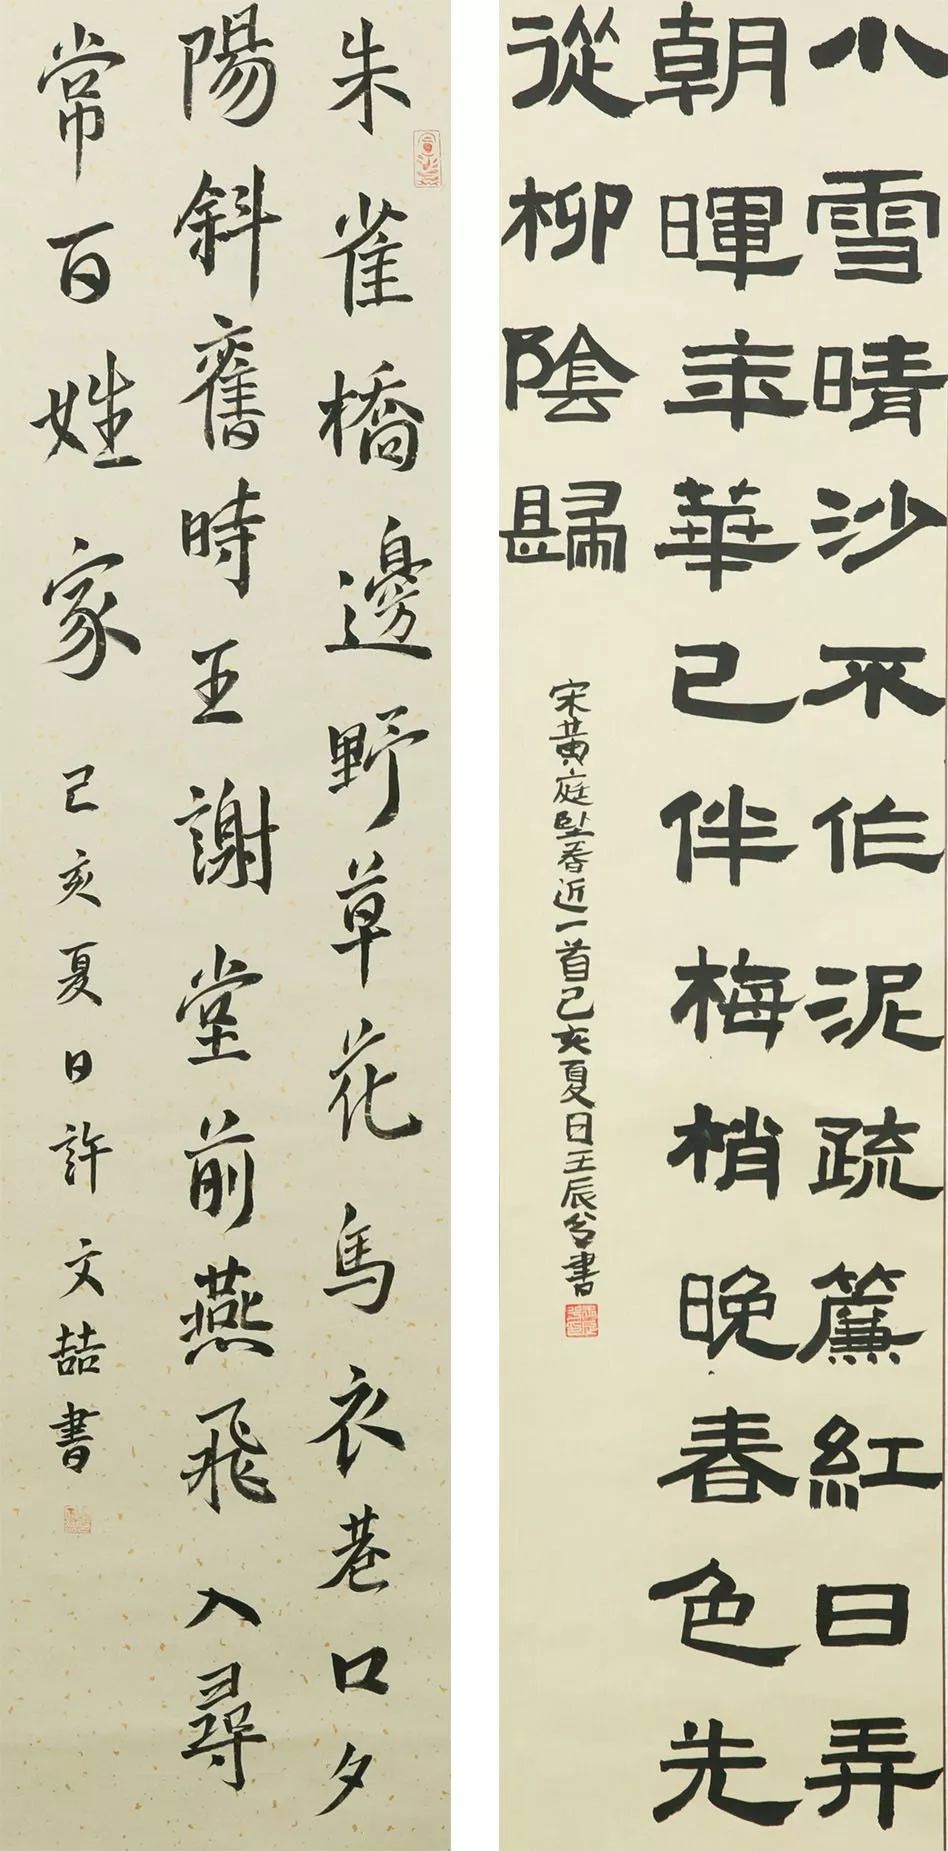 小雪晴沙不作泥疏簾紅日弄
朝暉年華已伴梅梢晚春色先
從柳陰歸
宋黄庭堅春近一首己亥夏日王辰書
朱雀橋邊野草花烏衣巷口夕
陽斜舊時王謝堂前燕飛入尋
常百姓家 己亥夏日許文喆書